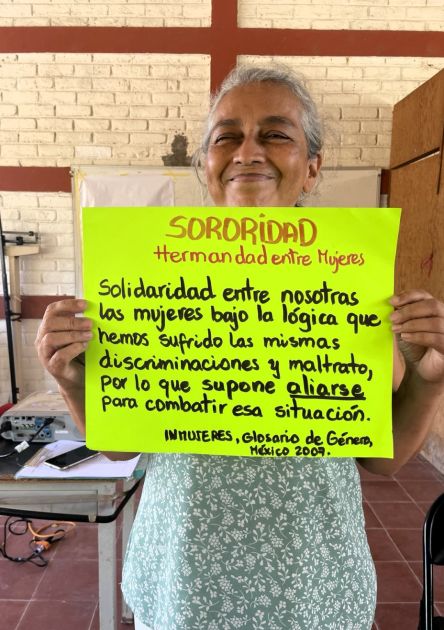 SORORIDAD
Hermandad entre Mujeres
Solidaridad entre nosotras
las mujeres bajo la lógica que
hemos sufrido las mismas
discriminaciones y maltrato,
por lo que supone aliarse
para combatir esa situación.
INMUJERES, Glosario de Género,
México 2007.